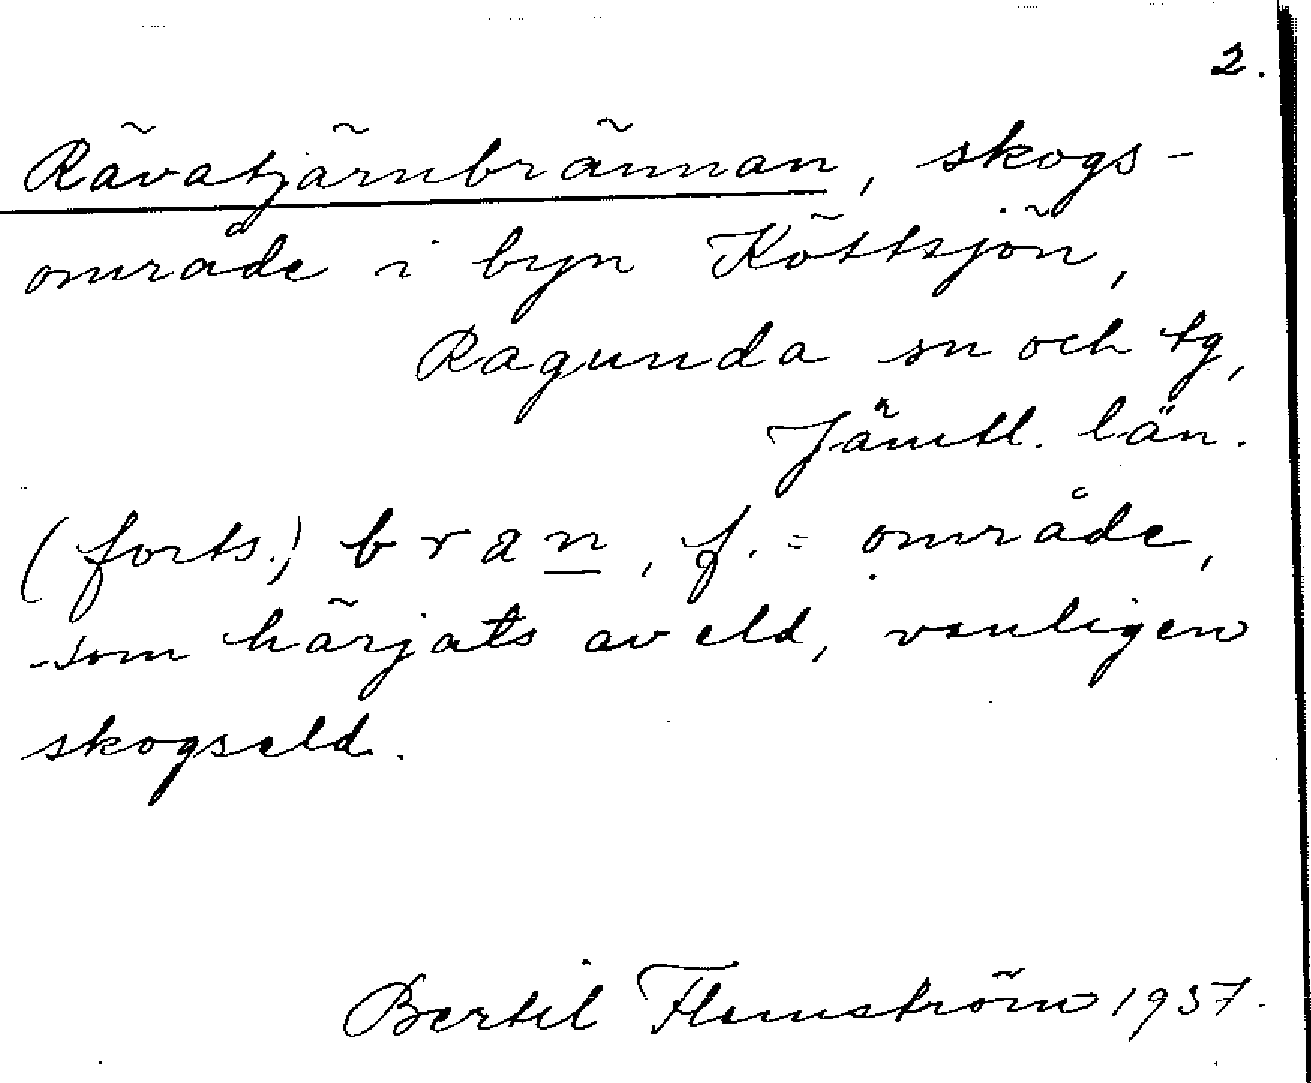 2.
Rävatjärnbrännan, skogs-
område i byn Köttsjön,
Ragunda sn och tg,
Jämtl. län.
(forts.) bran, f. = område,
som härjats av eld, vanligen
skogseld.
Bertil Flemström 1957.